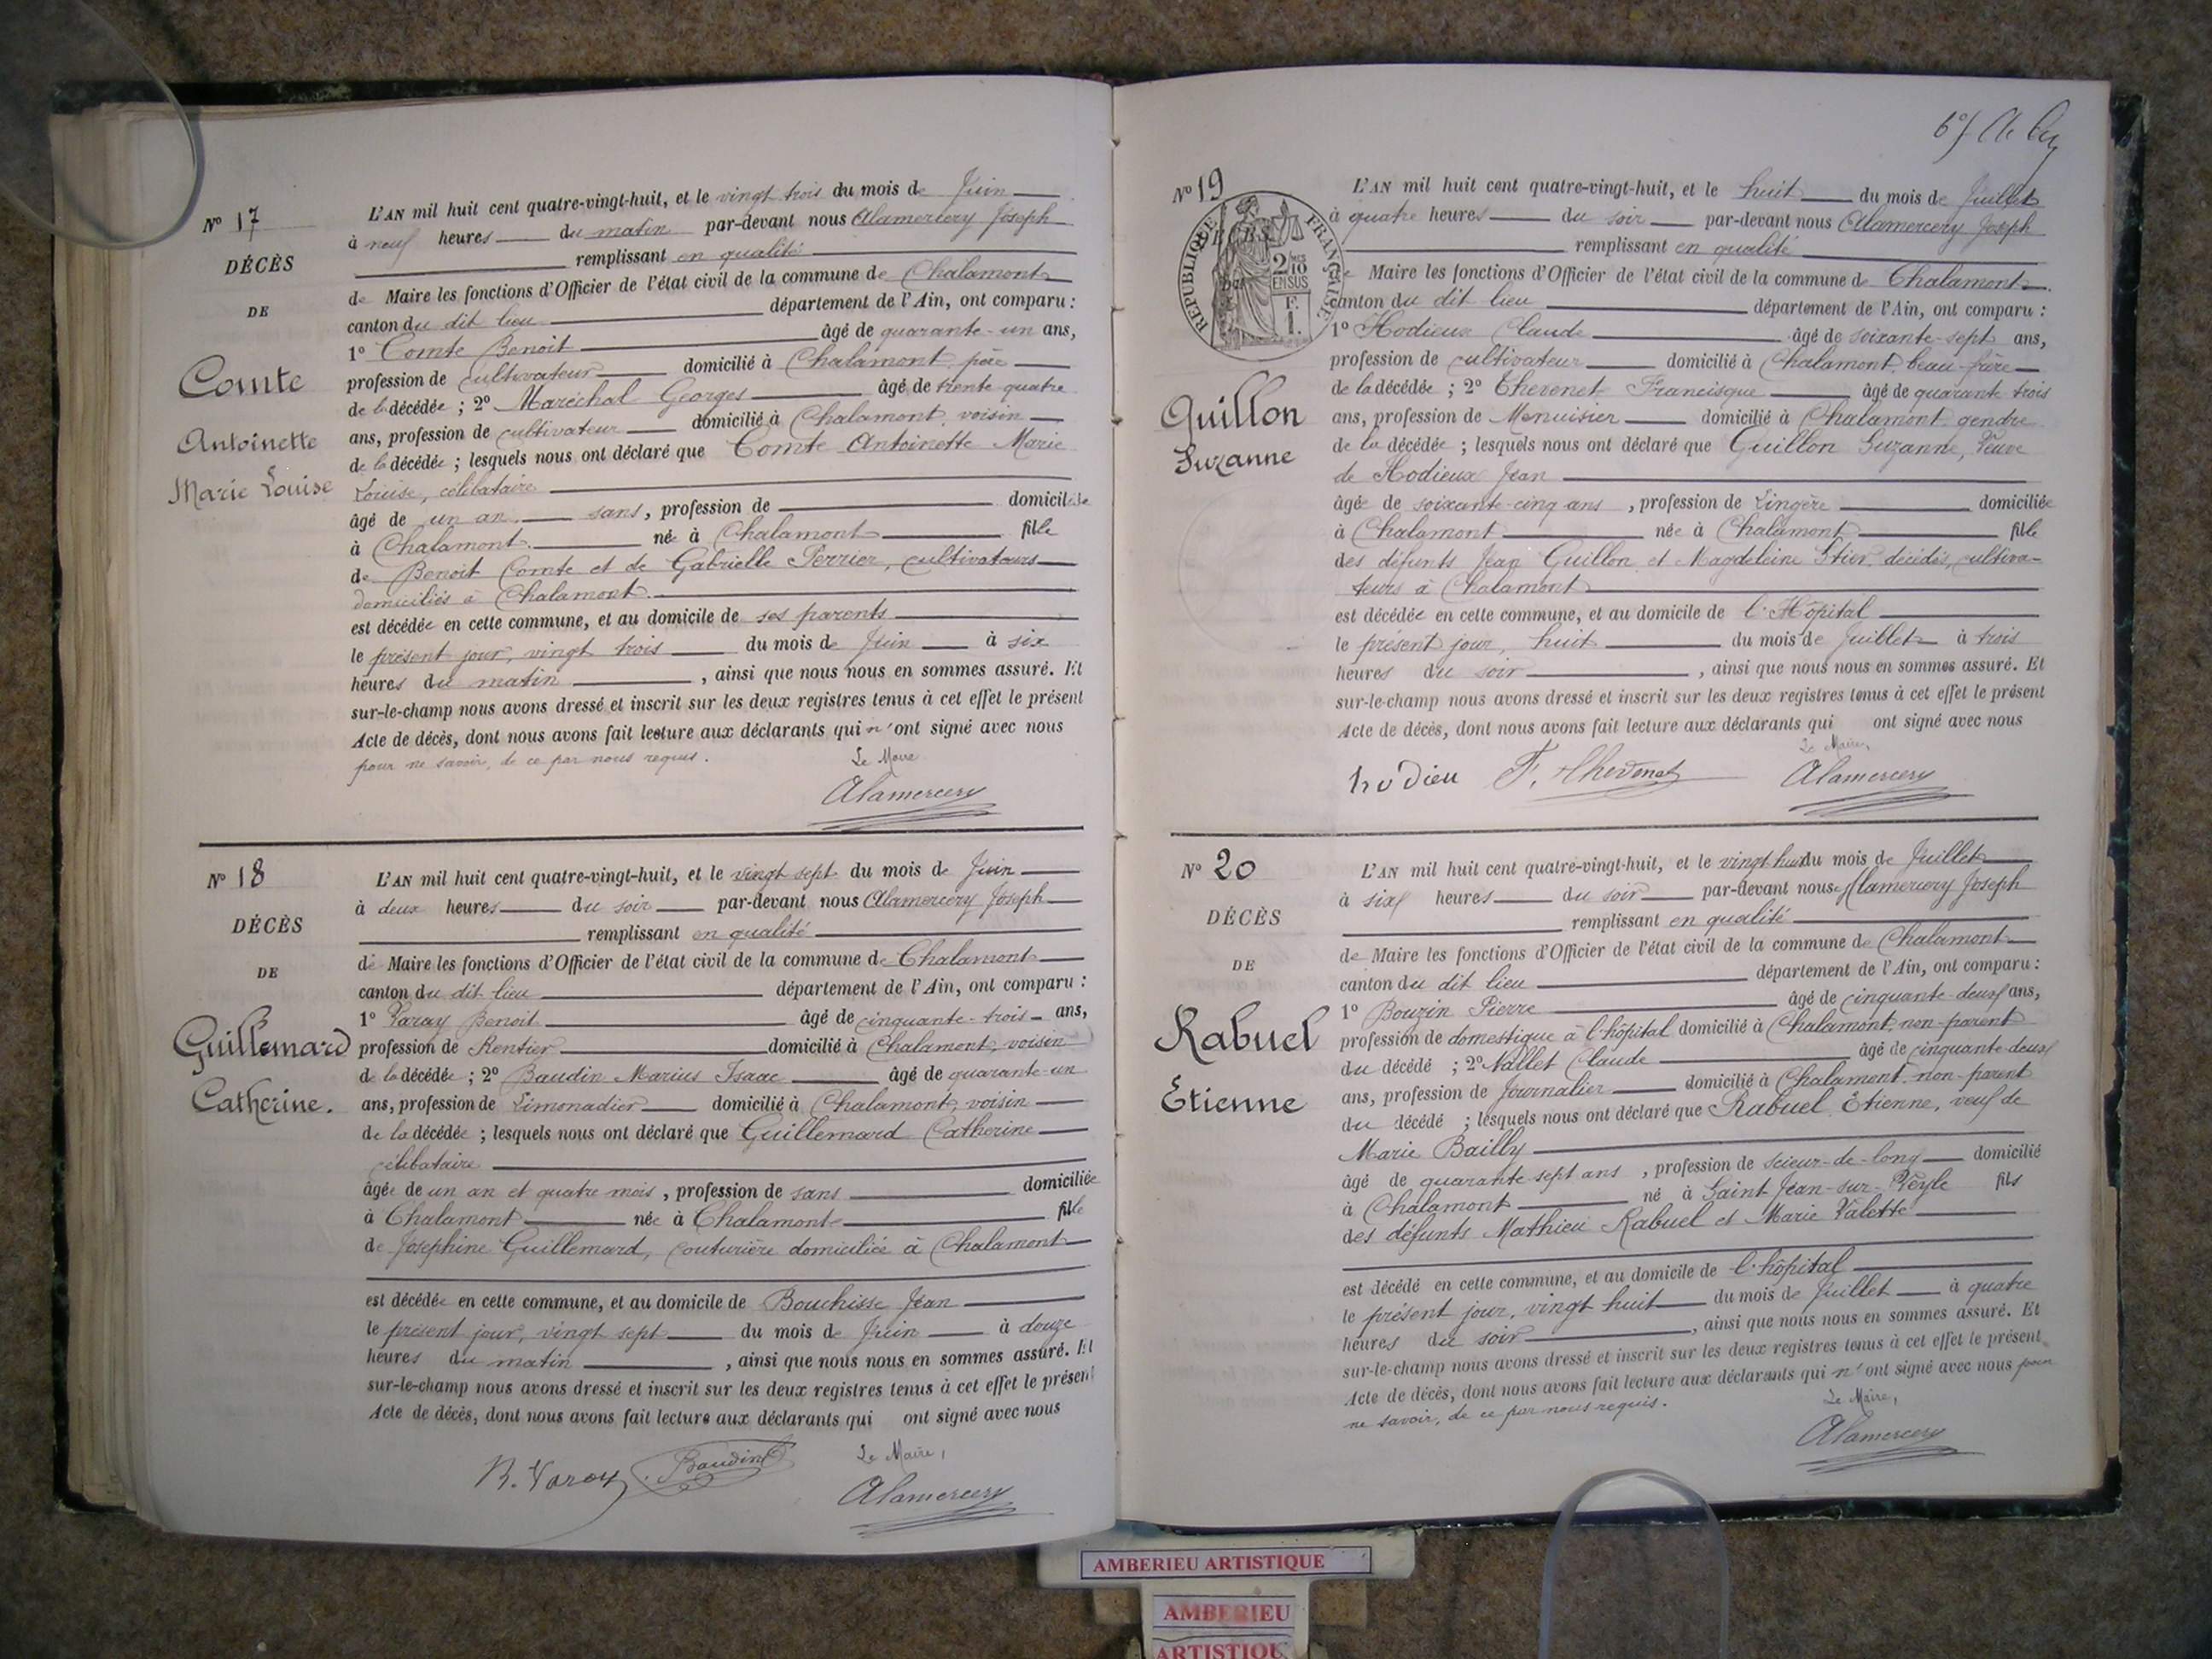 N° 17
DÉCÈS
DE
Comte
Antoinette
Marie Louise
L'AN mil huit cent quatre-vingt-huit, et le vingt trois du mois de Juin
à neuf heures du matin par-devant nous Alamercery Joseph
remplissant en qualité
de Maire les fonctions d'Officier de l'état civil de la commune de Chalamont
canton du dit lieu département de l'Ain, ont comparu :
1° Comte Benoit âgé de quarante-un ans,
profession de cultivateur domicilié à Chalamont père
de la décédée ; 2° Maréchal Georges âgé de trente quatre
ans, profession de cultivateur domicilié à Chalamont, voisin
de la décédée ; lesquels nous ont déclaré que Comte Antoinette Marie
Louise, célibataire
âgé de un an sans, profession de domiciliée
à Chalamont née à Chalamont fille
de Benoit Comte et de Gabrielle Perrier, cultivateurs
domiciliés à Chalamont.
est décédée en cette commune, et au domicile de ses parents
le présent jour, vingt trois du mois de Juin à six
heures du matin , ainsi que nous nous en sommes assuré. Et
sur-le-champ nous avons dressé et inscrit sur les deux registres tenus à cet effet le présent
Acte de décès, dont nous avons fait lecture aux déclarants qui n'ont signé avec nous
pour ne savoir, de ce par nous requis.
Le Maire
Alamercery
N° 18
DÉCÈS
DE
Guillemard
Catherine.
L'AN mil huit cent quatre-vingt-huit, et le vingt sept du mois de Juin
à deux heures du soir par-devant nous Alamercery Joseph
remplissant en qualité
de Maire les fonctions d'Officier de l'état civil de la commune de Chalamont
canton du dit lieu département de l'Ain, ont comparu :
1° Varay Benoit âgé de cinquante-trois ans,
profession de Rentier domicilié à Chalamont, voisin
de la décédée ; 2° Baudin Marius Isaac âgé de quarante-un
ans, profession de Limonadier domicilié à Chalamont, voisin
de la décédée ; lesquels nous ont déclaré que Guillemard Catherine
célibataire
âgée de un an et quatre mois, profession de sans domiciliée
à Chalamont née à Chalamont fille
de Joséphine Guillemard, couturière domiciliée à Chalamont
est décédée en cette commune, et au domicile de Bouchisse Jean
le présent jour, vingt sept du mois de Juin à douze
heures du matin , ainsi que nous nous en sommes assuré. Et
sur-le-champ nous avons dressé et inscrit sur les deux registres tenus à cet effet le présent
Acte de décès, dont nous avons fait lecture aux déclarants qui ont signé avec nous
B. Varay Baudin
Le Maire,
Alamercery
N° 19
RÉPUBLIQUE FRANÇAISE
2/10 EN SUS
F.
1.
Guillon
Suzanne
L'AN mil huit cent quatre-vingt-huit, et le huit du mois de Juillet
à quatre heures du soir par-devant nous Alamercery Joseph
remplissant en qualité
de Maire les fonctions d'Officier de l'état civil de la commune de Chalamont
canton du dit lieu département de l'Ain, ont comparu :
1° Hodieux Claude âgé de soixante-sept ans,
profession de cultivateur domicilié à Chalamont, beau-frère
de la décédée ; 2° Thevenet Francisque âgé de quarante trois
ans, profession de Menuisier domicilié à Chalamont gendre
de la décédée ; lesquels nous ont déclaré que Guillon Suzanne, Veuve
de Hodieux Jean
âgée de soixante-cinq ans , profession de Lingère domiciliée
à Chalamont née à Chalamont fille
des défunts Jean Guillon et Magdeleine décédés, cultiva-
teurs à Chalamont
est décédée en cette commune, et au domicile de l'Hôpital
le présent jour, huit du mois de Juillet à trois
heures du soir , ainsi que nous nous en sommes assuré. Et
sur-le-champ nous avons dressé et inscrit sur les deux registres tenus à cet effet le présent
Acte de décès, dont nous avons fait lecture aux déclarants qui ont signé avec nous
Le Maire,
hodieu F. Thevenet Alamercery
N° 20
DÉCÈS
DE
Rabuel
Etienne
L'AN mil huit cent quatre-vingt-huit, et le vingt huit du mois de Juillet
à six heures du soir par-devant nous Alamercery Joseph
remplissant en qualité
de Maire les fonctions d'Officier de l'état civil de la commune de Chalamont
canton du dit lieu département de l'Ain, ont comparu :
1° Bouzin Pierre âgé de cinquante-deux ans,
profession de domestique à l'hôpital domicilié à Chalamont, non-parent
du décédé ; 2° Vallet Claude âgé de cinquante-deux
ans, profession de Journalier domicilié à Chalamont non-parent
du décédé ; lesquels nous ont déclaré que Rabuel Etienne, veuf de
Marie Bailly
âgé de quarante sept ans , profession de scieur-de-long domicilié
à Chalamont né à Saint Jean-sur-Veyle fils
des défunts Mathieu Rabuel et Marie Valette
est décédé en cette commune, et au domicile de l'hôpital
le présent jour, vingt huit du mois de Juillet à quatre
heures du soir , ainsi que nous nous en sommes assuré. Et
sur-le-champ nous avons dressé et inscrit sur les deux registres tenus à cet effet le présent
Acte de décès, dont nous avons fait lecture aux déclarants qui n'ont signé avec nous pour
ne savoir, de ce par nous requis.
Le Maire,
Alamercery
AMBERIEU ARTISTIQUE
AMBERIEU
ARTISTIQU